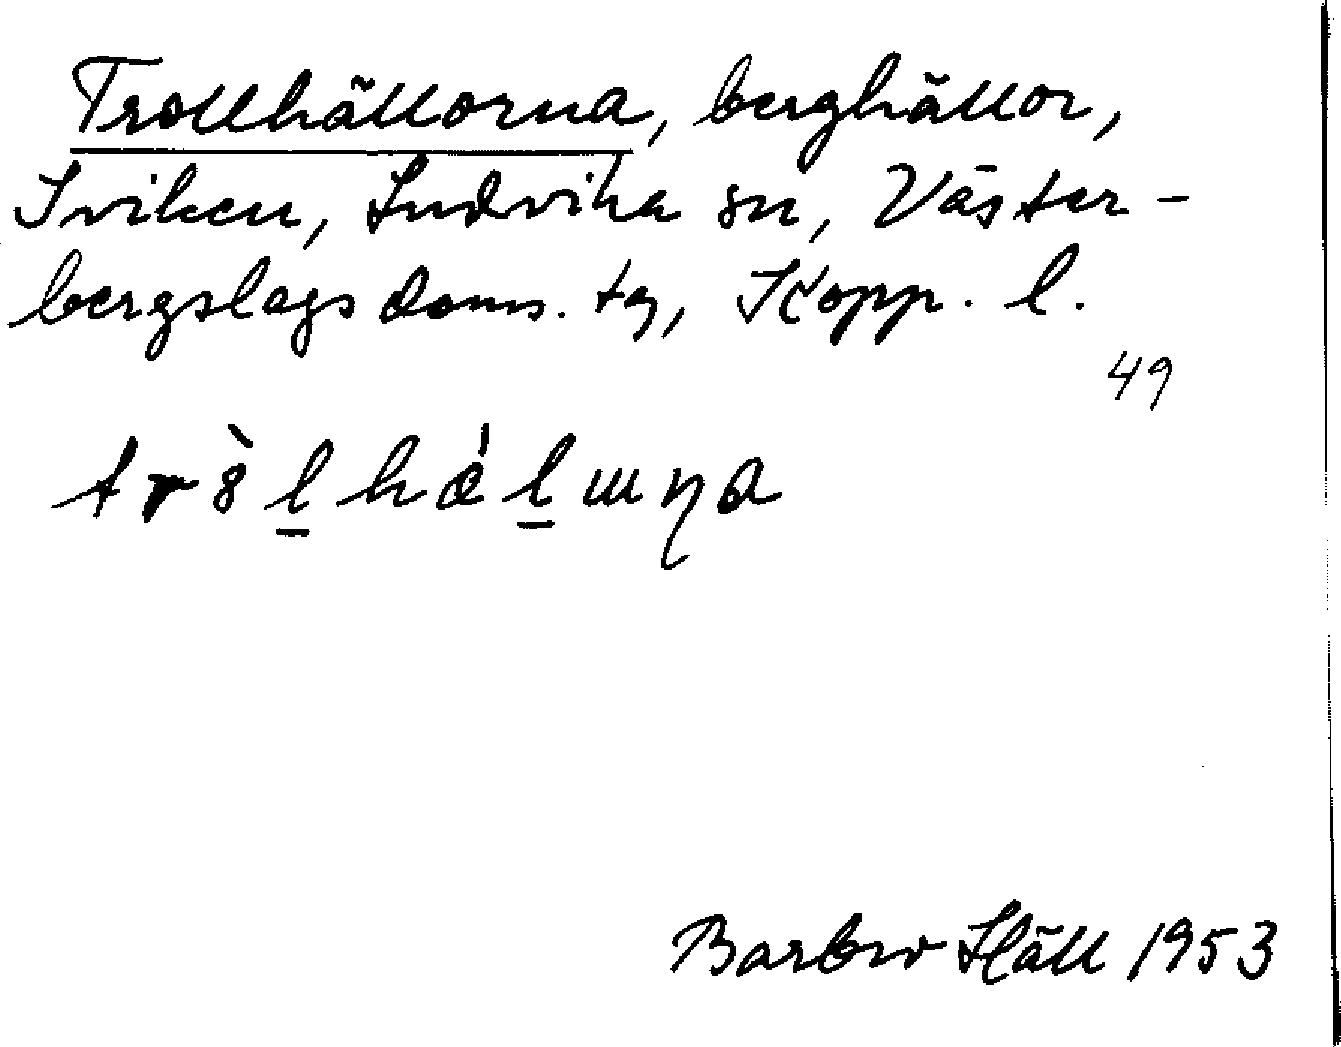 Trollhällorna, berghällor,
Sviken, Ludvika sn, Väster-
bergslags doms. tg, Kopp. l.
49
tr8̀l̲hǽl̲ɯɳa
Barbro Häll 1953